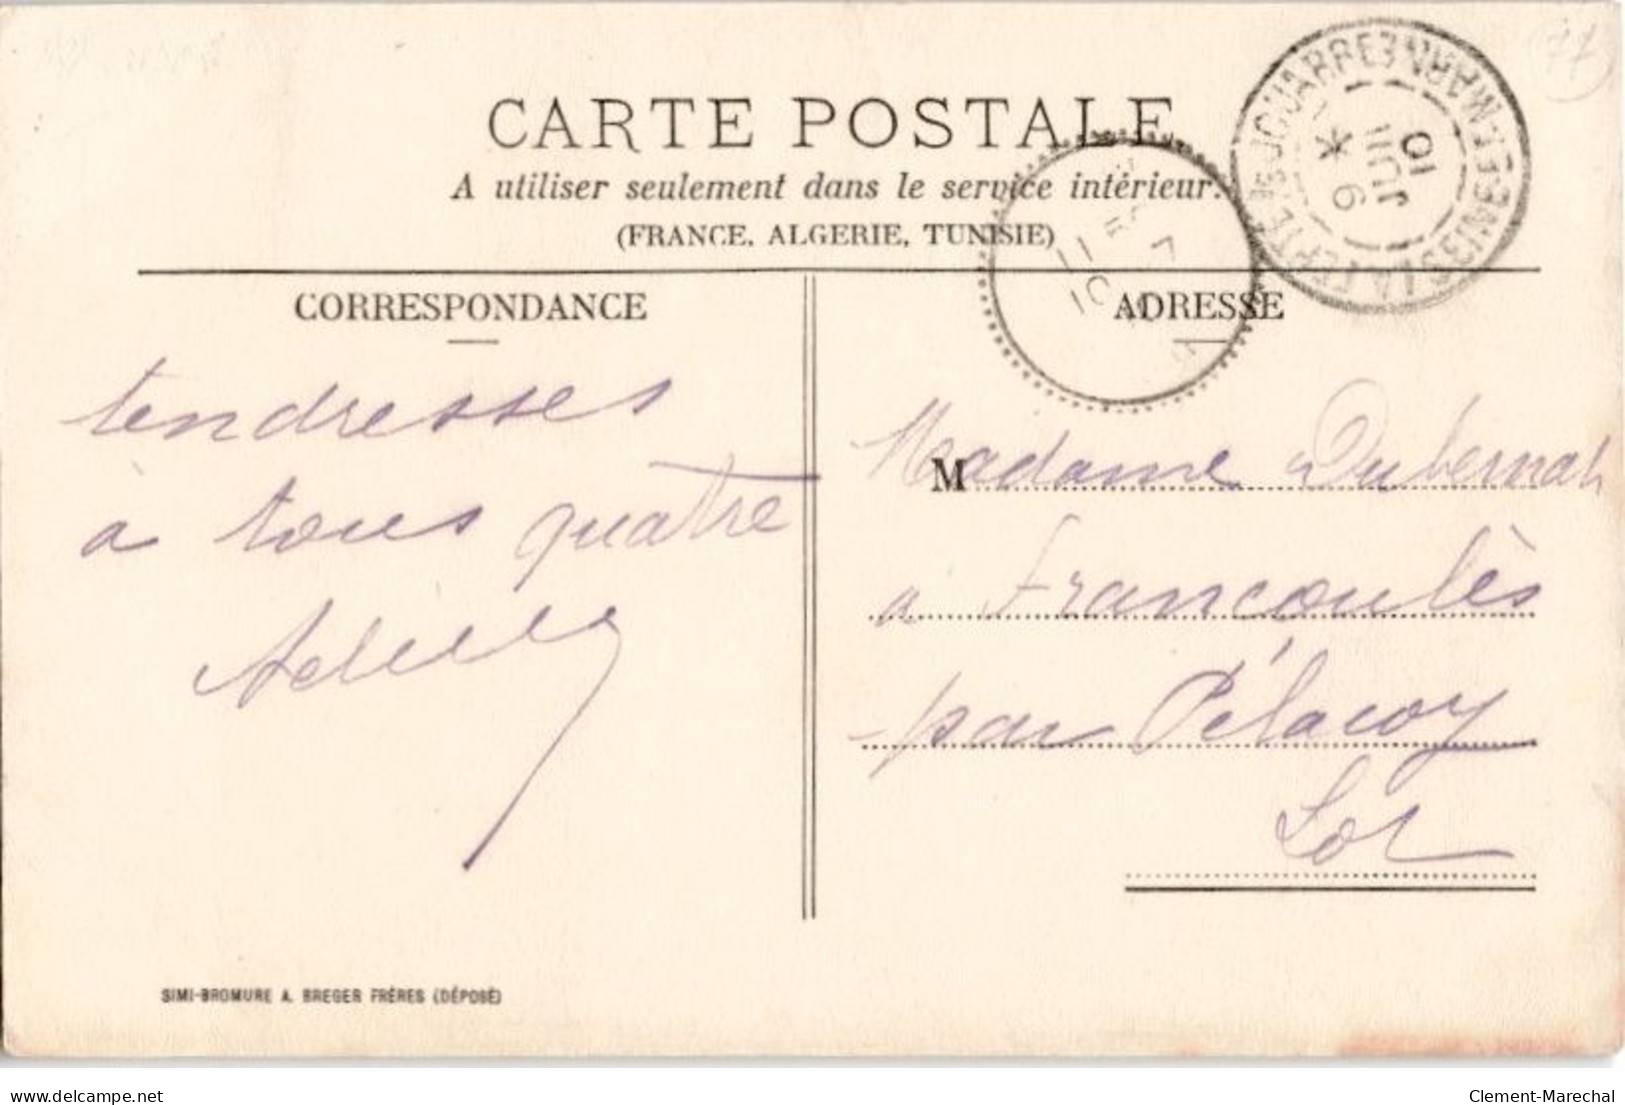 (77)
CARTE POSTALE
A utiliser seulement dans le service intérieur.
(FRANCE, ALGERIE, TUNISIE)
LA FERTE-S-JOUARRE
SEINE-ET-MARNE
6
JUIL
10
CORRESPONDANCE
ADRESSE
tendresses
à tous quatre
M
Madame
à Francoulès
par Pélacoy
Lot
SIMI-BROMURE A. BREGER FRÈRES (DÉPOSÉ)
delcampe.net
Clement-Marechal